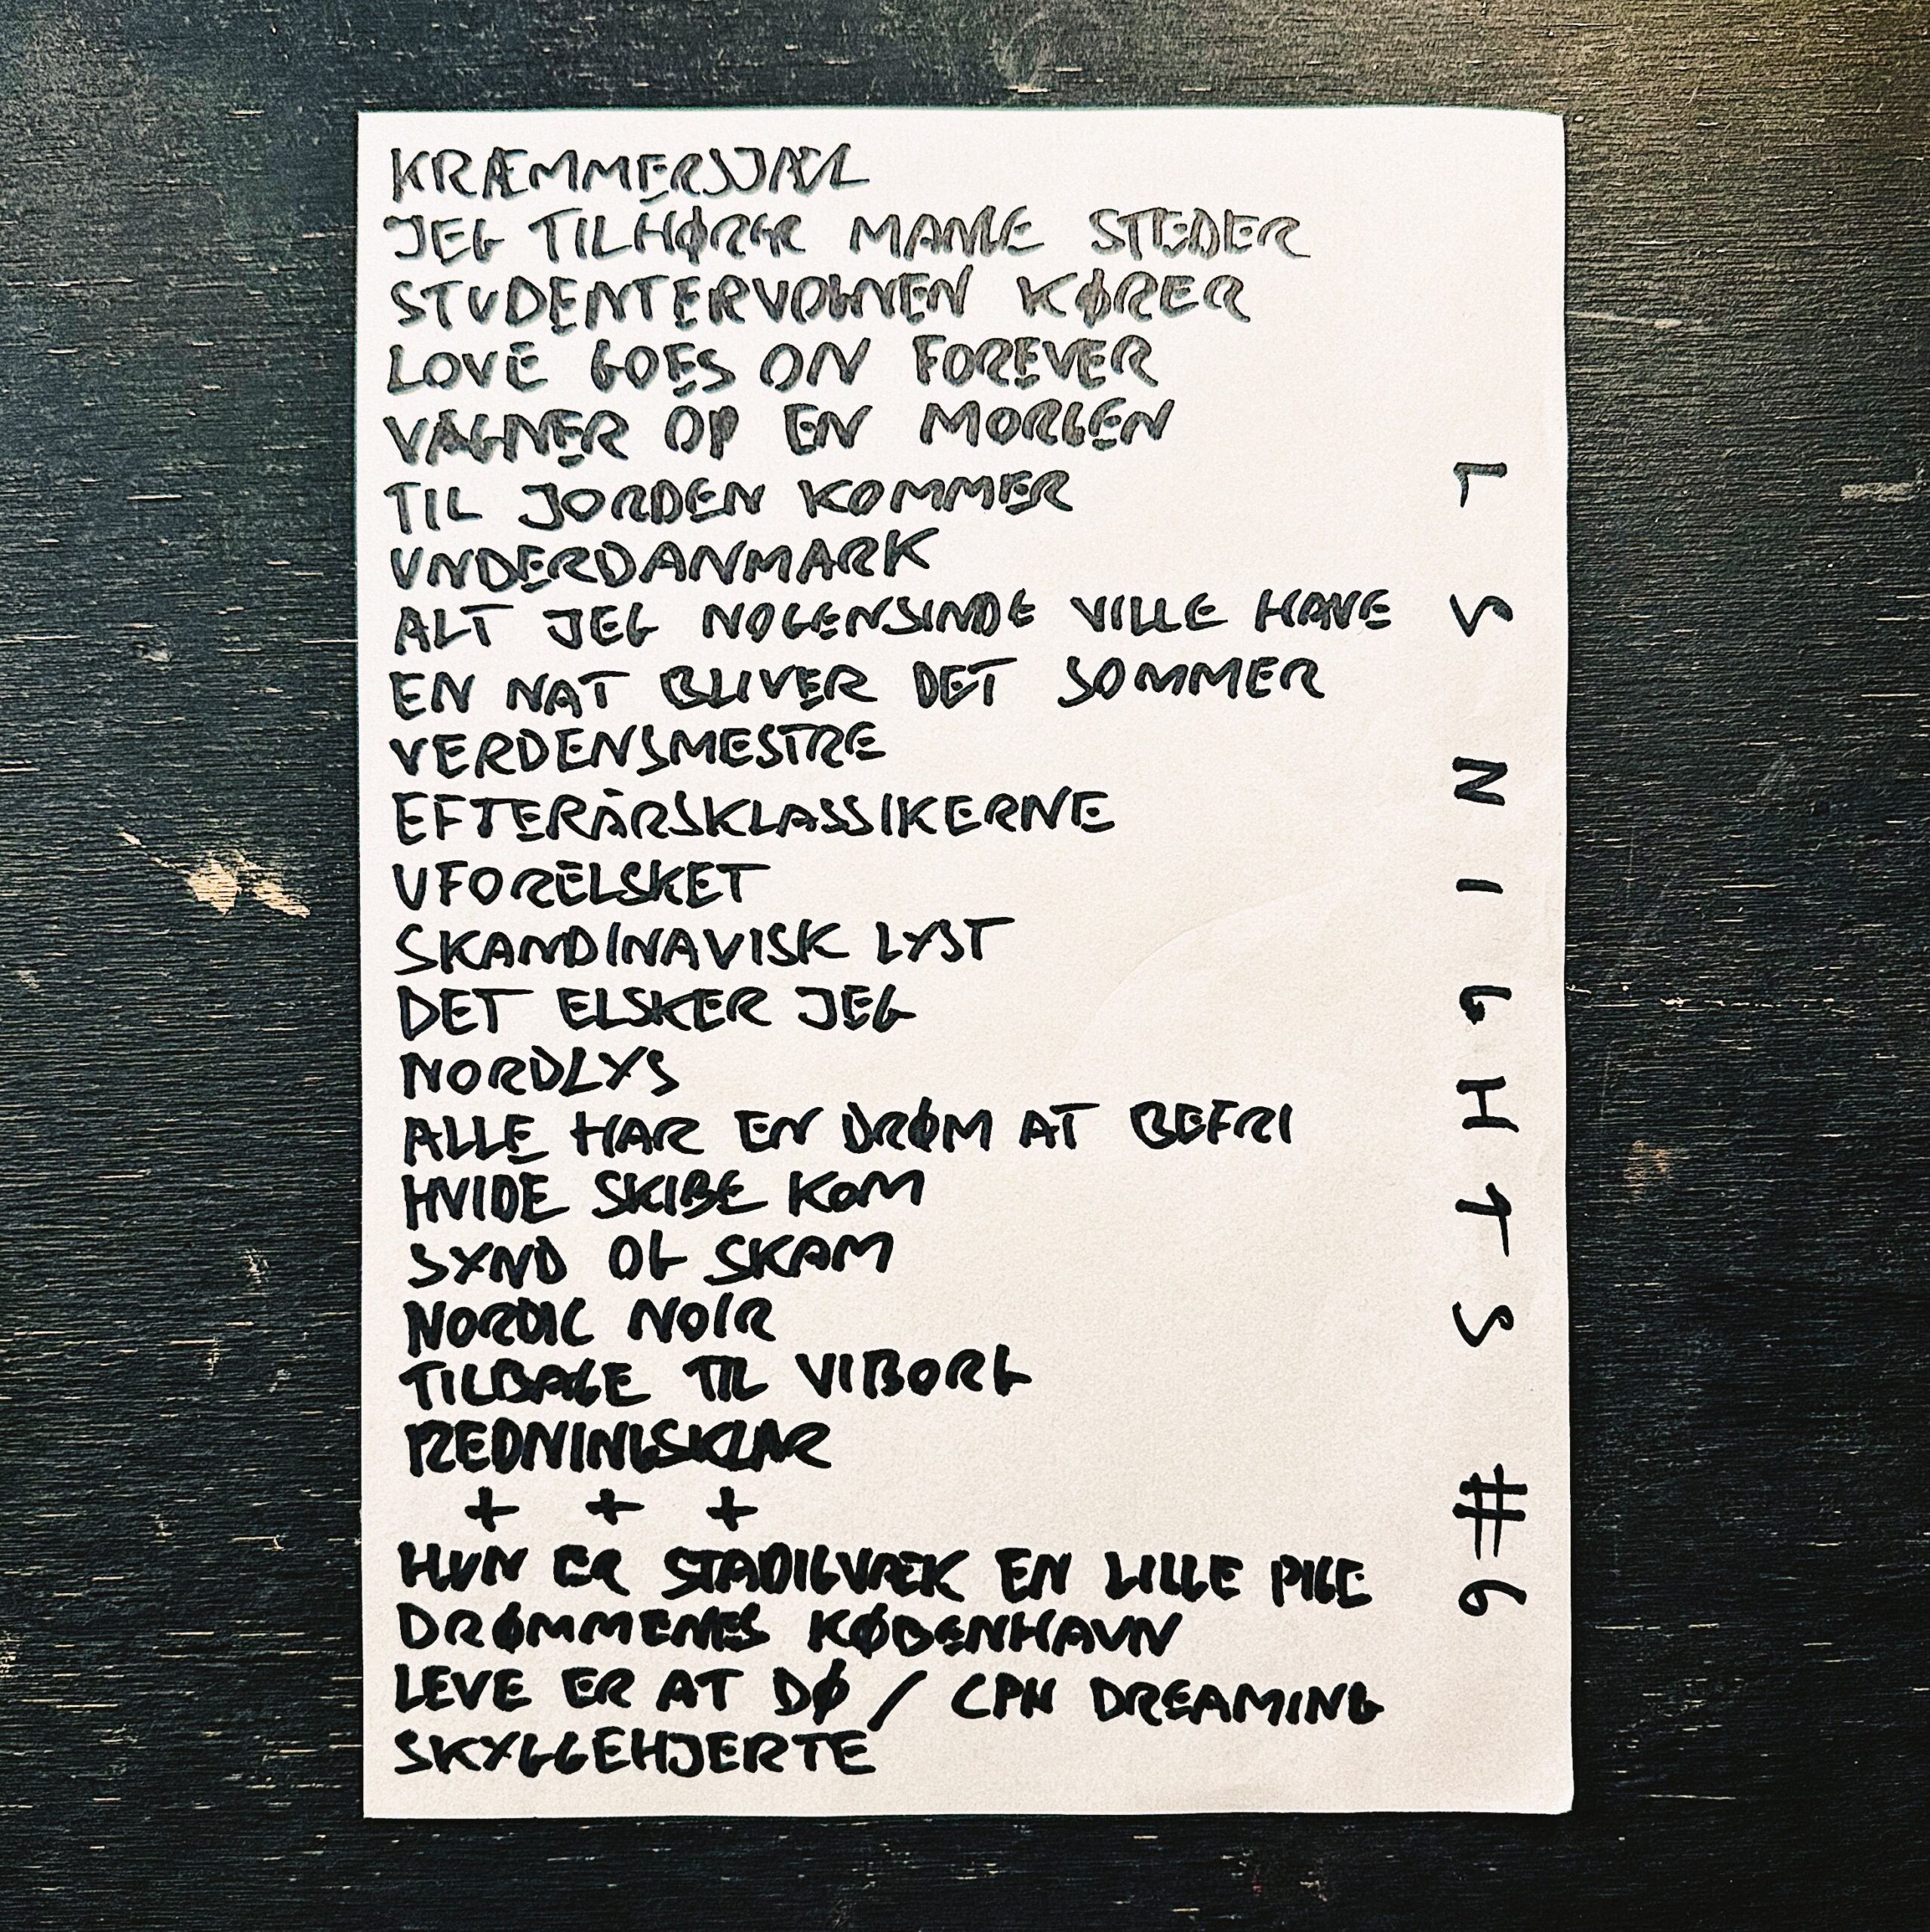 KRÆMMERSJÆL
JEG TILHØRER MANGE STEDER
STUDENTERVOGNEN KØRER
LOVE GOES ON FOREVER
VÅGNER OP EN MORGEN
TIL JORDEN KOMMER
UNDERDANMARK
ALT JEG NOGENSINDE VILLE HAVE
EN NAT BLIVER DET SOMMER
VERDENSMESTRE
EFTERÅRSKLASSIKERNE
UFORELSKET
SKANDINAVISK LYST
DET ELSKER JEG
NORDLYS
ALLE HAR EN DRØM AT BEFRI
HVIDE SKIBE KOM
SYND OG SKAM
NORDIC NOIR
TILBAGE TIL VIBORG
REDNINGSKLAR
+ + +
HUN ER STADIGVÆK EN LILLE PIGE
DRØMMENES KØBENHAVN
LEVE ER AT DØ / CPH DREAMING
SKYGGEHJERTE
LS NIGHTS #6